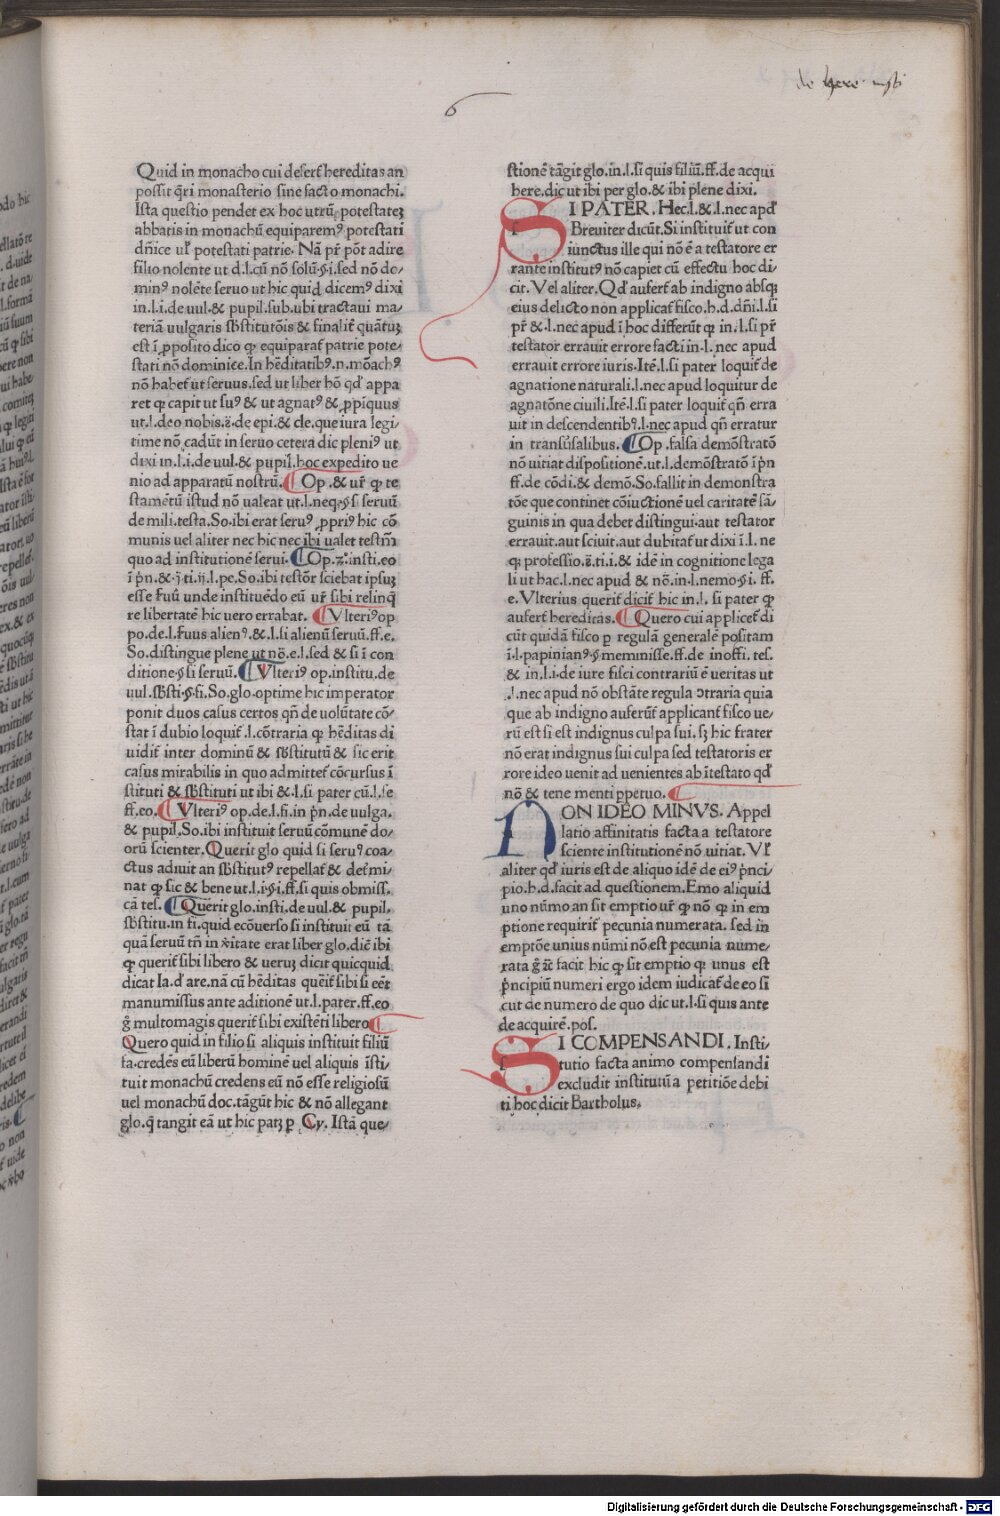 de here insti
6
Quid in monacho cui defert̉ hereditas an
possit q̄ri monasterio sine facto monachi.
Ista questio pendet ex hoc utrū potestateȝ
abbatis in monachū equiparemꝰ potestati
dn̄ice ul̓ potestati patrie. Nā pr̄ pōt adire
filio nolente ut d.l.cū nō solū.§.i.sed nō do⸗
minꝰ nolēte seruo ut hic quid dicemꝰ dixi
in.l.i.de uul.& pupil.sub.ubi tractaui ma⸗
teriā uulgaris sb̄stitutōis & finalit̓ quātuȝ
est ī ꝓposito dico ꝙ equiparat̓ patrie pote⸗
stati nō dominice. In hēditatibꝰ.n.mōachꝰ
nō habet ut seruus.sed ut liber hō qd̓ appa
ret ꝙ capit ut suꝰ & ut agnatꝰ & ꝓpiquus
ut.l.deo nobis.ē.de epi.& cle.que iura legi⸗
time nō cadūt in seruo cetera dic pleniꝰ ut
dixi in.l.i.de uul.& pupil.hoc expedito ue
nio ad apparatū nostrū. Op.& ur̓ ꝙ te
stamētū istud nō ualeat ut.l.neqꝫ.§.si seruū
de mili.testa. So.ibi erat seruꝰ ꝓpriꝰ hic cō
munis uel aliter nec hic nec ibi ualet testm̄
quo ad institutionē serui. Op.z.insti.eo
ī p̄n.&.ij.ti.ij.l.pe. So.ibi testōr sciebat ipsuȝ
esse s̄uū unde instituēdo eū ur̓ sibi relinq̄
re libertatē hic uero errabat. Vlteriꝰ op
po.de.l.s̄uus alienꝰ.&.l.si alienū seruū.ff.e.
So.distingue plene ut nō.e.l.sed & si ī con
ditione.§.si seruū. Vlteriꝰ op.institu.de
uul.sb̄sti.§.fi. So.glo.optime hic imperator
ponit duos casus certos qn̄ de uolūtate cō⸗
stat ī dubio loquit̓.l.cōtraria ꝙ hēditas di
uidit̓ inter dominū & sb̄stitutū & sic erit
casus mirabilis in quo admittet̓ cōcursus ī
stituti & sb̄stituti ut ibi &.l.si pater cū.l.se
ff.eo. Vlteriꝰ op.de.l.fi.in p̄n.de uulga.
& pupil. So.ibi instituit seruū cōmunē do⸗
orū scienter. Querit glo quid si seruꝰ coa⸗
ctus adiuit an sb̄stitutꝰ repellat̓ & det̓mi⸗
nat ꝙ sic & bene ut.l.i.§.i.ff.si quis obmiss.
cā tes. Querit glo.insti.de uul.& pupil.
sb̄stitu.in fi.quid ecōuerso si instituit eū tā
quā seruū tn̄ in v̓itate erat liber glo.dic̄ ibi
ꝙ querit̓ sibi libero & ueruȝ dicit quicquid
dicat Ia.d̓ are.nā cū hēditas quēit̓ sibi si eēt
manumissus ante aditionē ut.l.pater.ff.eo
g̓ multomagis querit̓ sibi existēti libero
Quero quid in filio si aliquis instituit filiū
fa.credēs eū liberū hominē uel aliquis īsti⸗
tuit monachū credens eū nō esse religiosū
uel monachū doc.tāgūt hic & nō allegant
glo.q̄ tangit eā ut hic patꝫ p Cy. Istā que⸗
stionē tāgit glo.in.l.si quis filiū.ff.de acqui
here.dic ut ibi per glo.& ibi plene dixi.
SI PATER. Hec.l.&.l.nec apd̓
Breuiter dicūt. Si instituit̓ ut con
iunctus ille qui nō ē a testatore er
rante institutꝰ nō capiet cū effectu hoc di⸗
cit. Vel aliter. Qd̓ aufert̓ ab indigno absqꝫ
eius delicto non applicat̓ fisco.h.d.dn̄i.l.si
pr̄ &.l.nec apud ī hoc differūt ꝙ in.l.si pr̄
testator errauit errore facti in.l. nec apud
errauit errore iuris. Itē.l.si pater loquit̓ de
agnatione naturali.l.nec apud loquitur de
agnatōne ciuili. Itē.l.si pater loquit̓ qn̄ erra
uit in descendentibꝰ.l.nec apud qn̄ erratur
in transūsalibus. Op.falsa demōstratō
nō uitiat dispositionē.ut.l.demōstratō ī p̄n
ff.de cōdi.& demō. So.fallit in demonstra
tōe que continet cōiuctionē uel caritatē sā⸗
guinis in qua debet distingui.aut testator
errauit.aut sciuit.aut dubitat̓ ut dixi ī.l. ne
qꝫ professio.ē.ti.i.& idē in cognitione lega
li ut hac.l.nec apud & nō.in.l.nemo.§.i. ff.
e. Vlterius querit̓ dicit̓ hic in.l. si pater ꝙ
aufert̓ hereditas. Quero cui applicet̓ di
cūt quidā fisco p regulā generalē positam
ī.l.papinianꝰ.§.meminisse.ff.de inoffi. tes.
& in.l.i.de iure fisci contrariū ē ueritas ut
.l.nec apud nō obstāte regula ↄtraria quia
que ab indigno auferūt̓ applicant̓ fisco ue⸗
rū est si est indignus culpa sui. sȝ hic frater
nō erat indignus sui culpa sed testatoris er
rore ideo uenit ad uenientes ab ītestato qd̓
nō & tene menti ppetuo.
NON IDEO MINVS. Appel
latio affinitatis facta a testatore
sciente institutionē nō uitiat. Vl̓
aliter qd̓ iuris est de aliquo idē de eiꝰ p̄nci⸗
pio.h.d.facit ad questionem. Emo aliquid
uno nūmo an sit emptio ur̓ ꝙ nō ꝙ in em
ptione requirit̓ pecunia numerata. sed in
emptōe unius nūmi nō est pecunia nume⸗
rata g̓ ēt̄ facit hic ꝙ sit emptio qꝫ unus est
p̄ncipiū numeri ergo idem iudicat̓ de eo si
cut de numero de quo dic ut.l.si quis ante
de acquirē.pos.
SI COMPENSANDI. Insti⸗
tutio facta animo compensandi
excludit institutū a petitiōe debi
ti hoc dicit Bartholus.
Digitalisierung gefördert durch die Deutsche Forschungsgemeinschaft - DFG